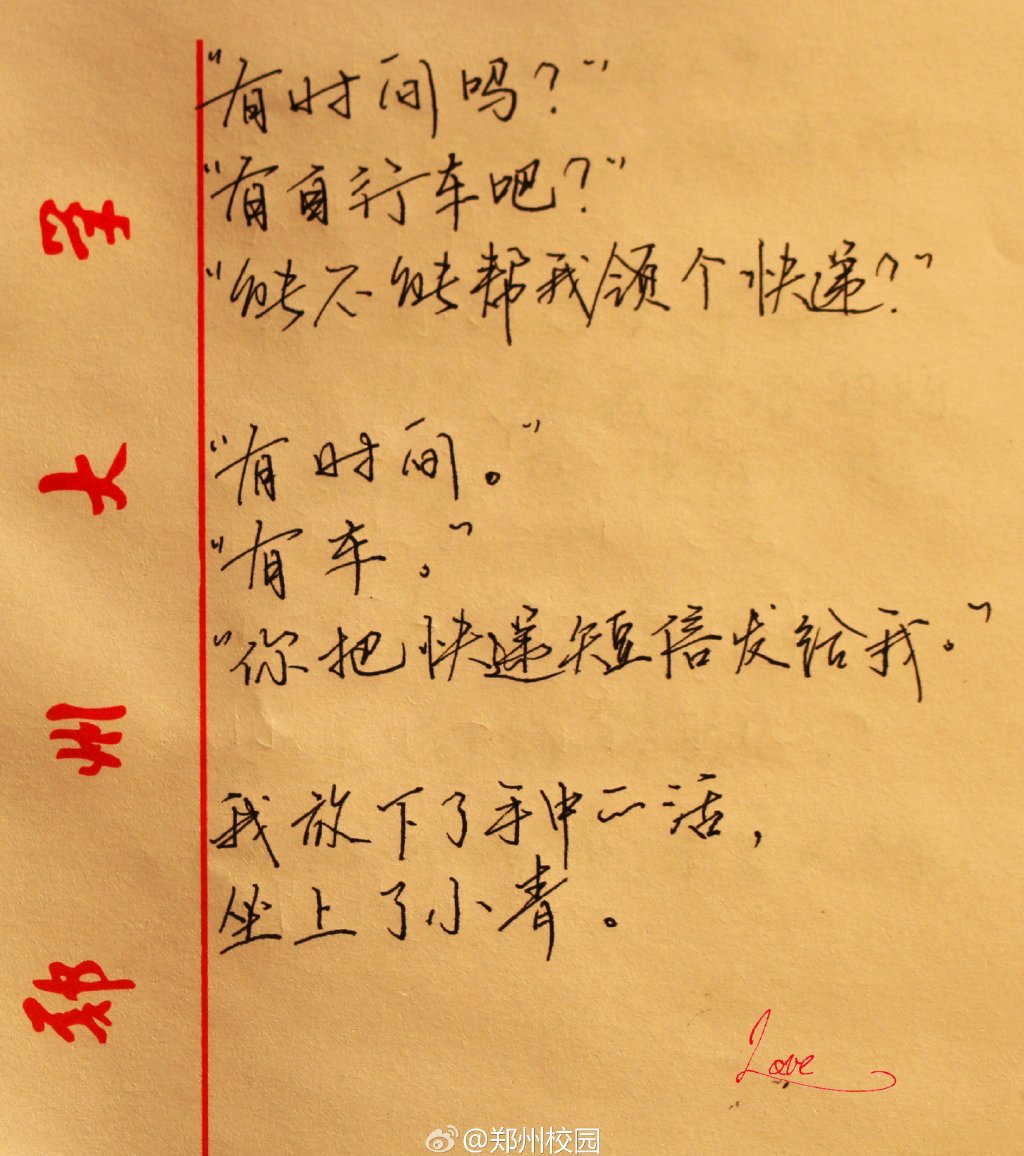 “有时间吗？”
“有自行车吧？”
“能不能帮我领个快递？”
“有时间。”
“有车。”
“你把快递短信发给我。”
我放下了手中的活，
坐上了小青。
郑州大学
Love
@郑州校园